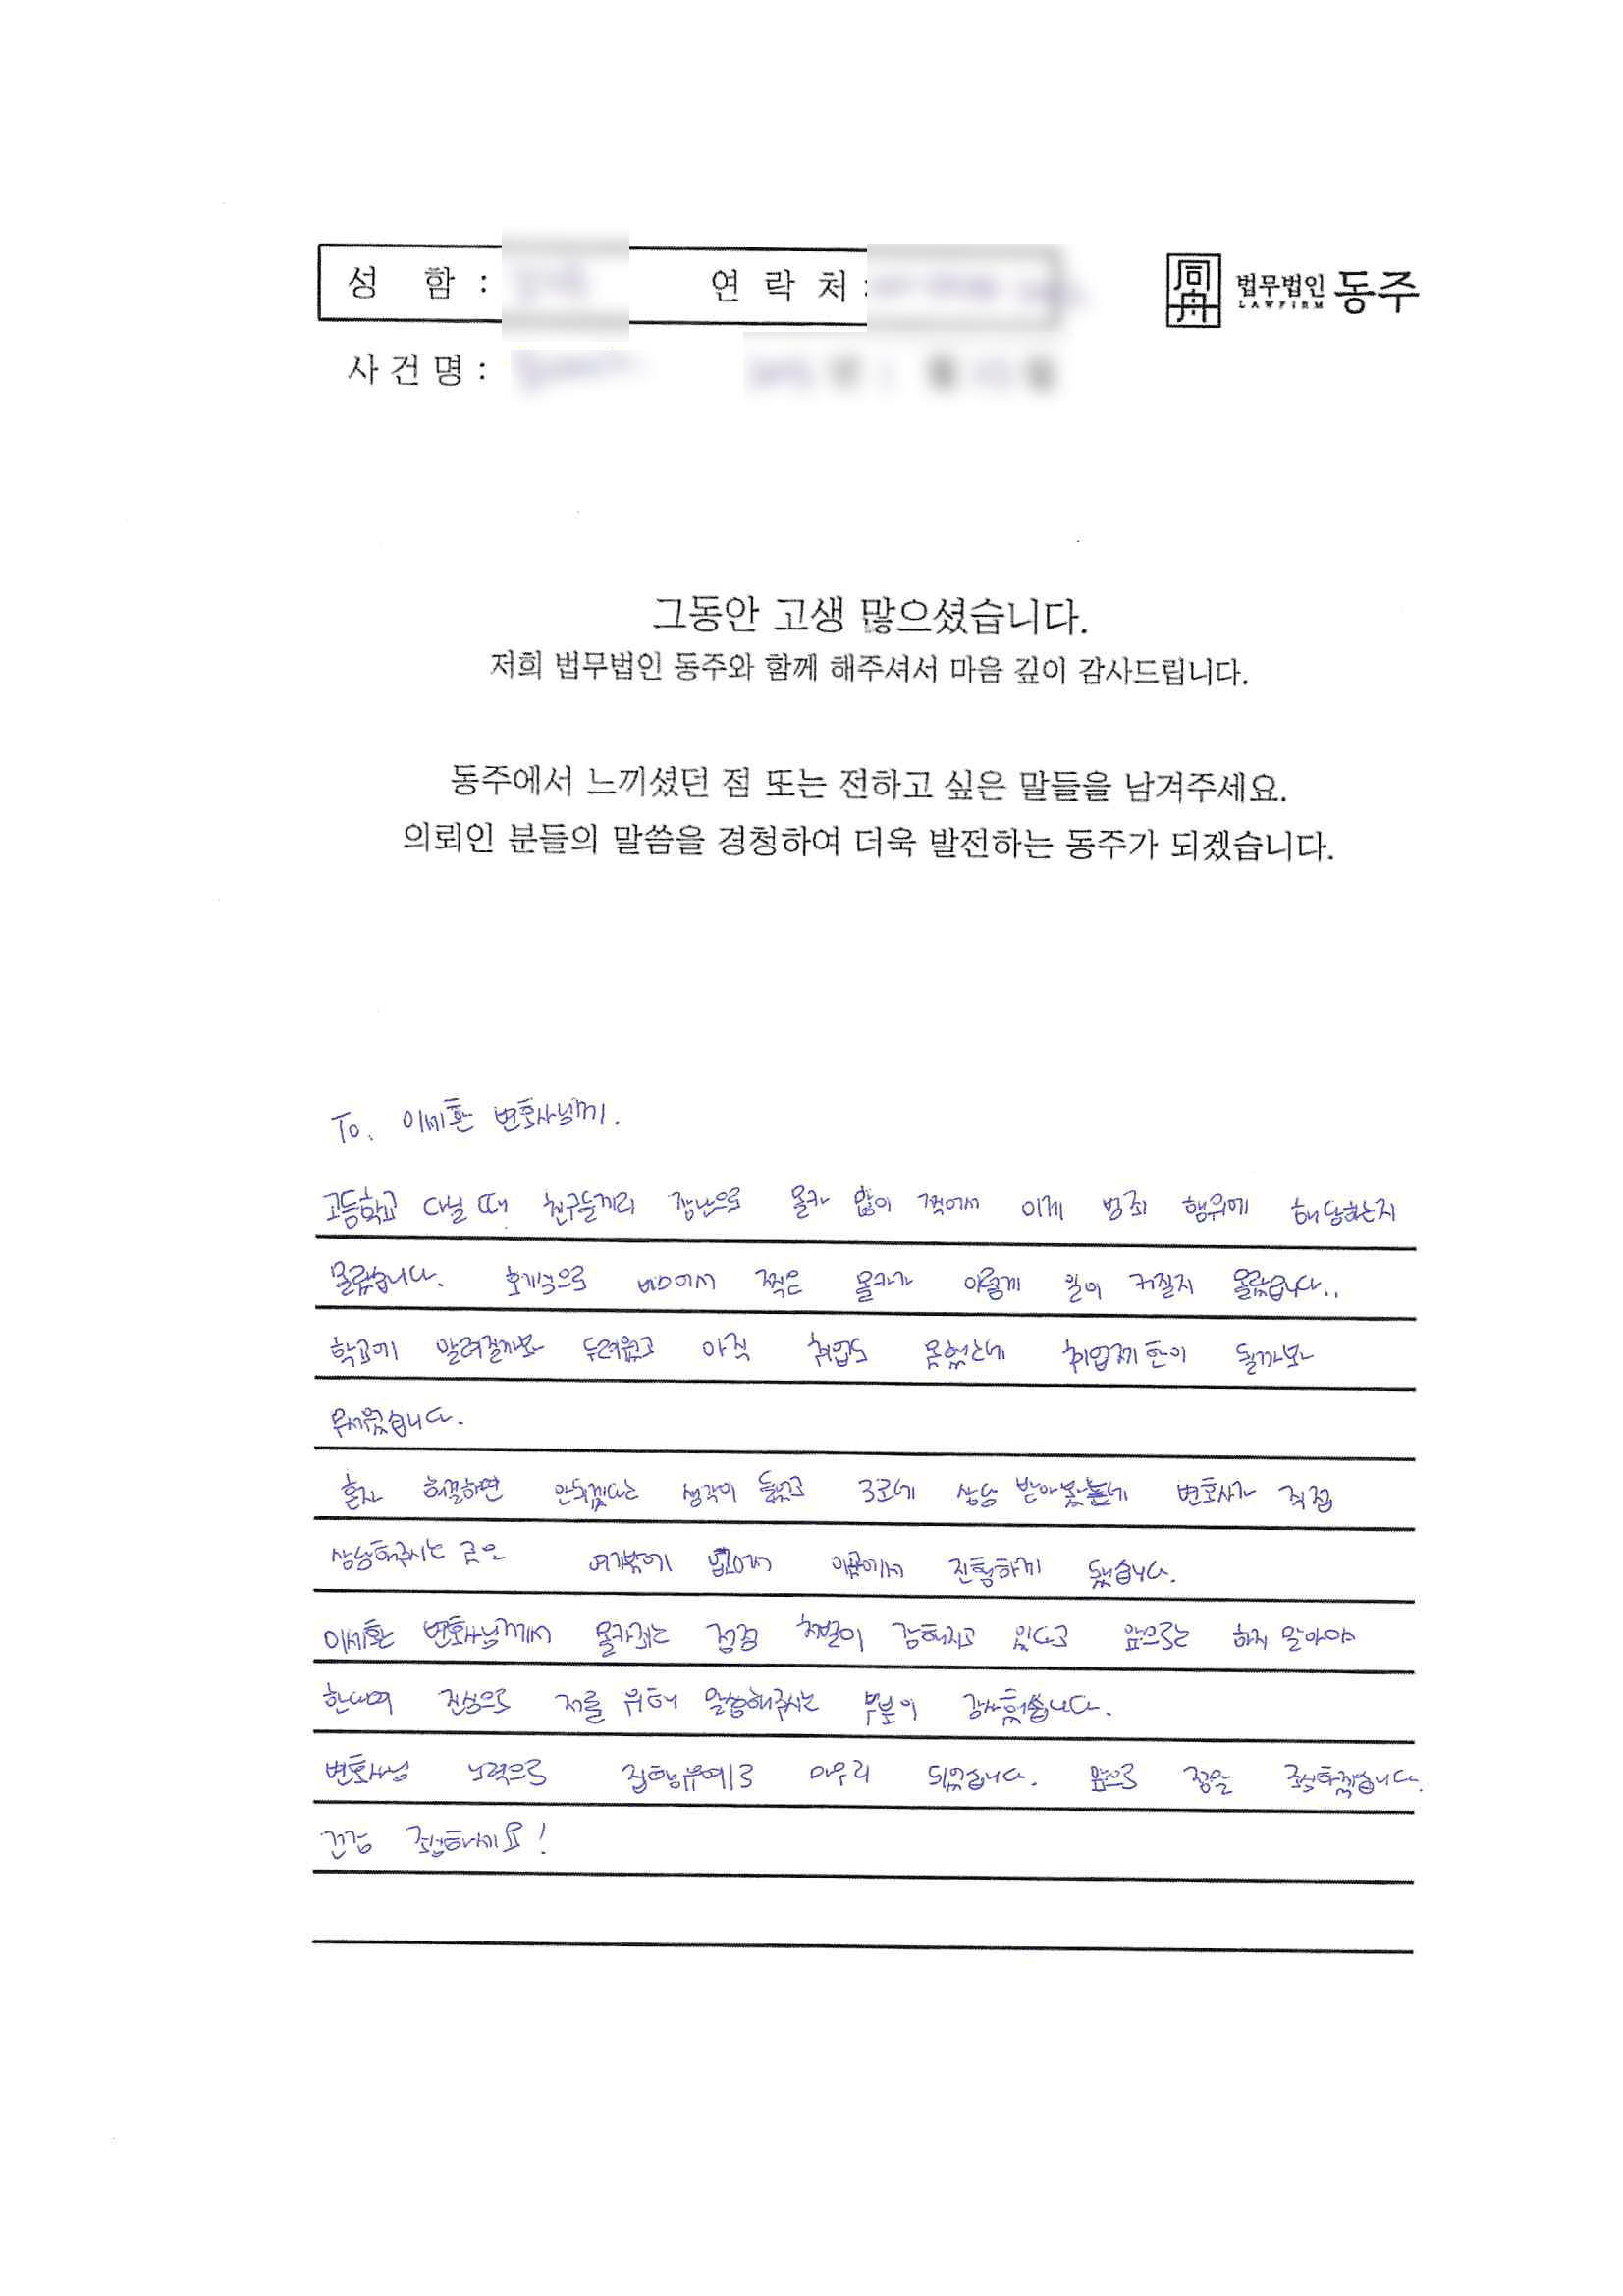 성 함 : 연 락 처 :
同舟 법무법인 동주
LAWFIRM
사 건 명 :
그동안 고생 많으셨습니다.
저희 법무법인 동주와 함께 해주셔서 마음 깊이 감사드립니다.
동주에서 느끼셨던 점 또는 전하고 싶은 말들을 남겨주세요.
의뢰인 분들의 말씀을 경청하여 더욱 발전하는 동주가 되겠습니다.
To. 이세환 변호사님께.
고등학교 다닐 때 친구들끼리 장난으로 몰카 많이 찍어서 이게 범죄 행위에 해당하는지
몰랐습니다. 호기심으로 버스에서 찍은 몰카가 이렇게 일이 커질지 몰랐습니다..
학교에 알려질까봐 두려웠고 아직 취업도 못했는데 취업제한이 될까봐
무서웠습니다.
혼자 해결하면 안되겠다는 생각이 들었고 3코네 상담 받아봤는데 변호사가 직접
상담해주시는 곳은 여기밖에 없어서 이곳에서 진행하게 됐습니다.
이세환 변호사님께서 몰카죄는 점점 처벌이 강해지고 있다고 앞으로는 하지 말아야
한다며 진심으로 저를 위해 말씀해주시는 부분이 감사했습니다.
변호사님 노력으로 집행유예로 마무리 되었습니다. 앞으로 정말 조심하겠습니다.
건강 조심하세요!